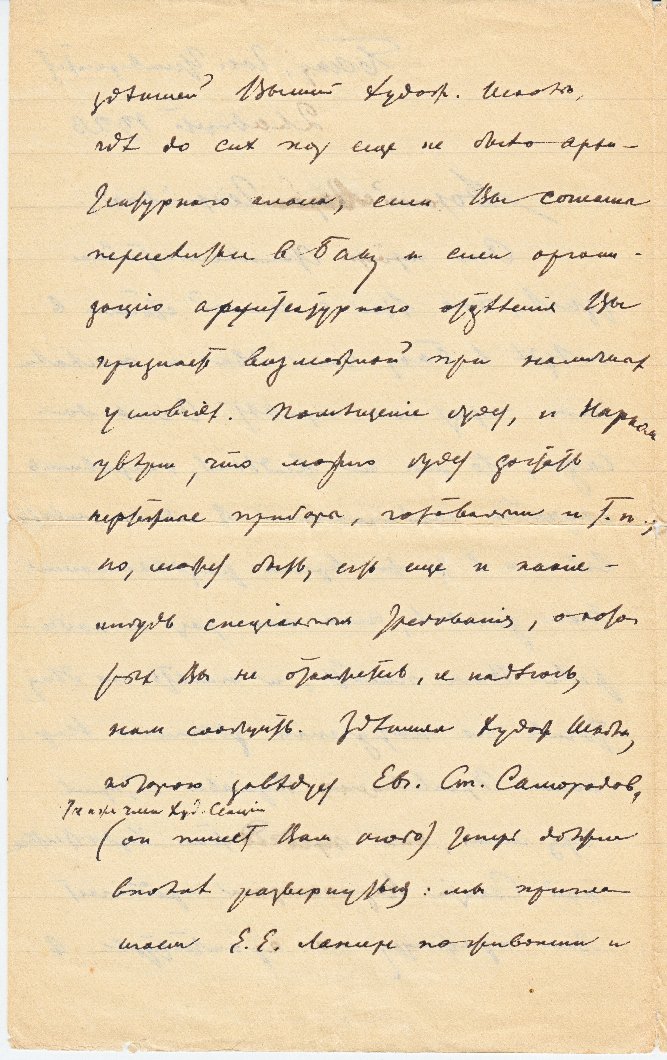 здѣшней Высшей Худож. Школы,
гдѣ до сих пор еще не было архи-
тектурного класса, если Вы согласны
переѣхать в Баку и если органи-
зацію архитектурного отдѣленія Вы
признаете возможной при наличных
условіях. Помѣщеніе будет, и Нарком
увѣрен, что можно будет достать
чертежные приборы, готовальни и т.п.,
но, может быть, есть еще и какіе-
нибудь спеціальныя требованія, о кото-
рых Вы не откажетесь, я надѣюсь,
нам сообщить. Здѣшняя Худож Школа,
которою завѣдует Евг. Ст. Самородов,
также член Худ. Секціи
(он пишет Вам особо) теперь должна
вполнѣ развернуться: мы пригла-
шаем Е. Е. Лансере по живописи и